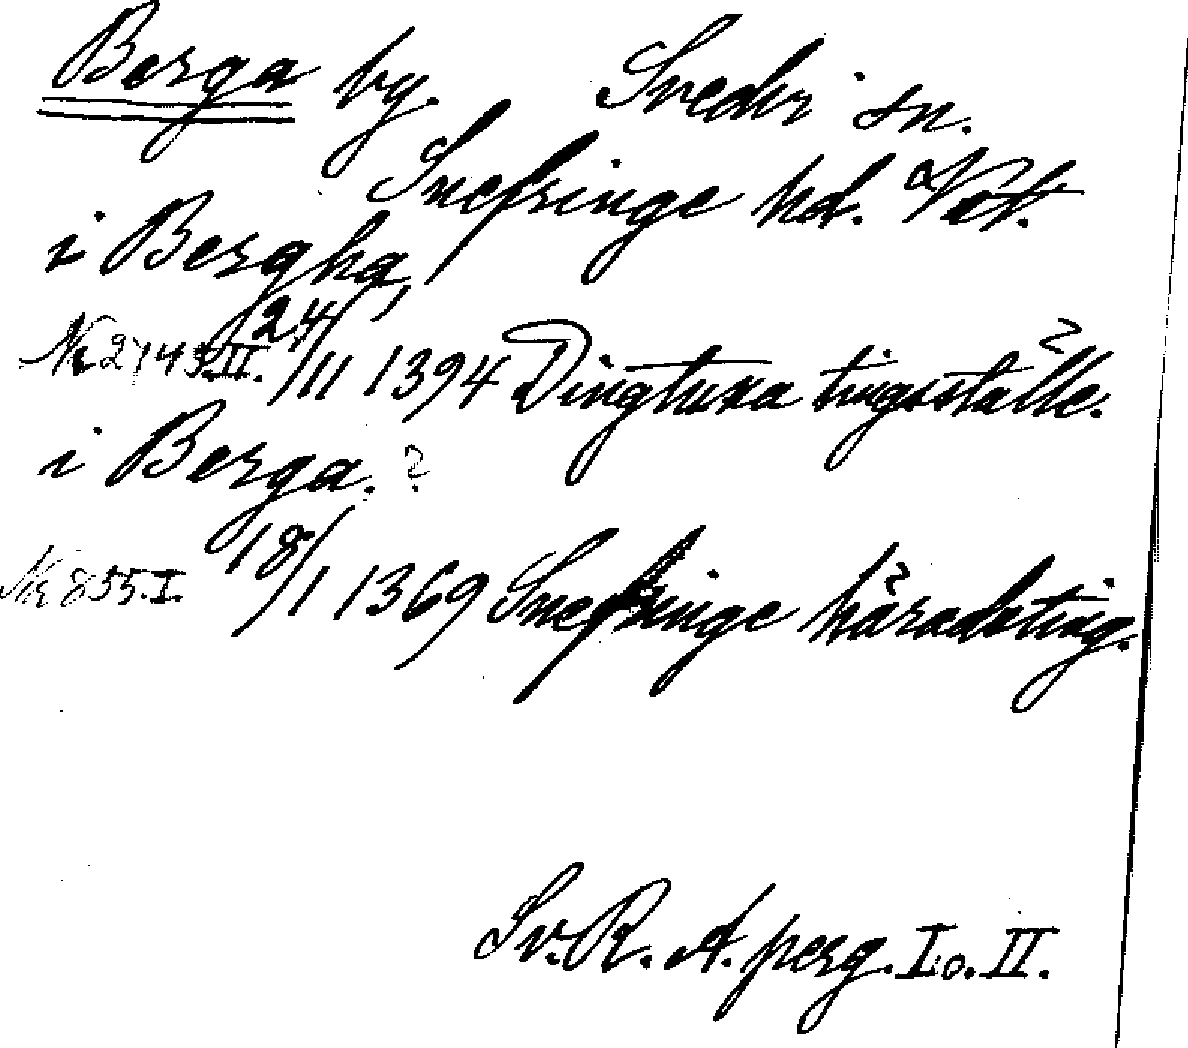 Berga by. Svedvi sn.
Snefringe hd. Vstm.
i Bergha,
Nr 2743.II. 24/11 1394 Dingtuna tingsställe.
i Berga. ?
Nr 855.I. 18/1 1369 Snefringe häradsting.
Sv. R. A. perg. I o. II.